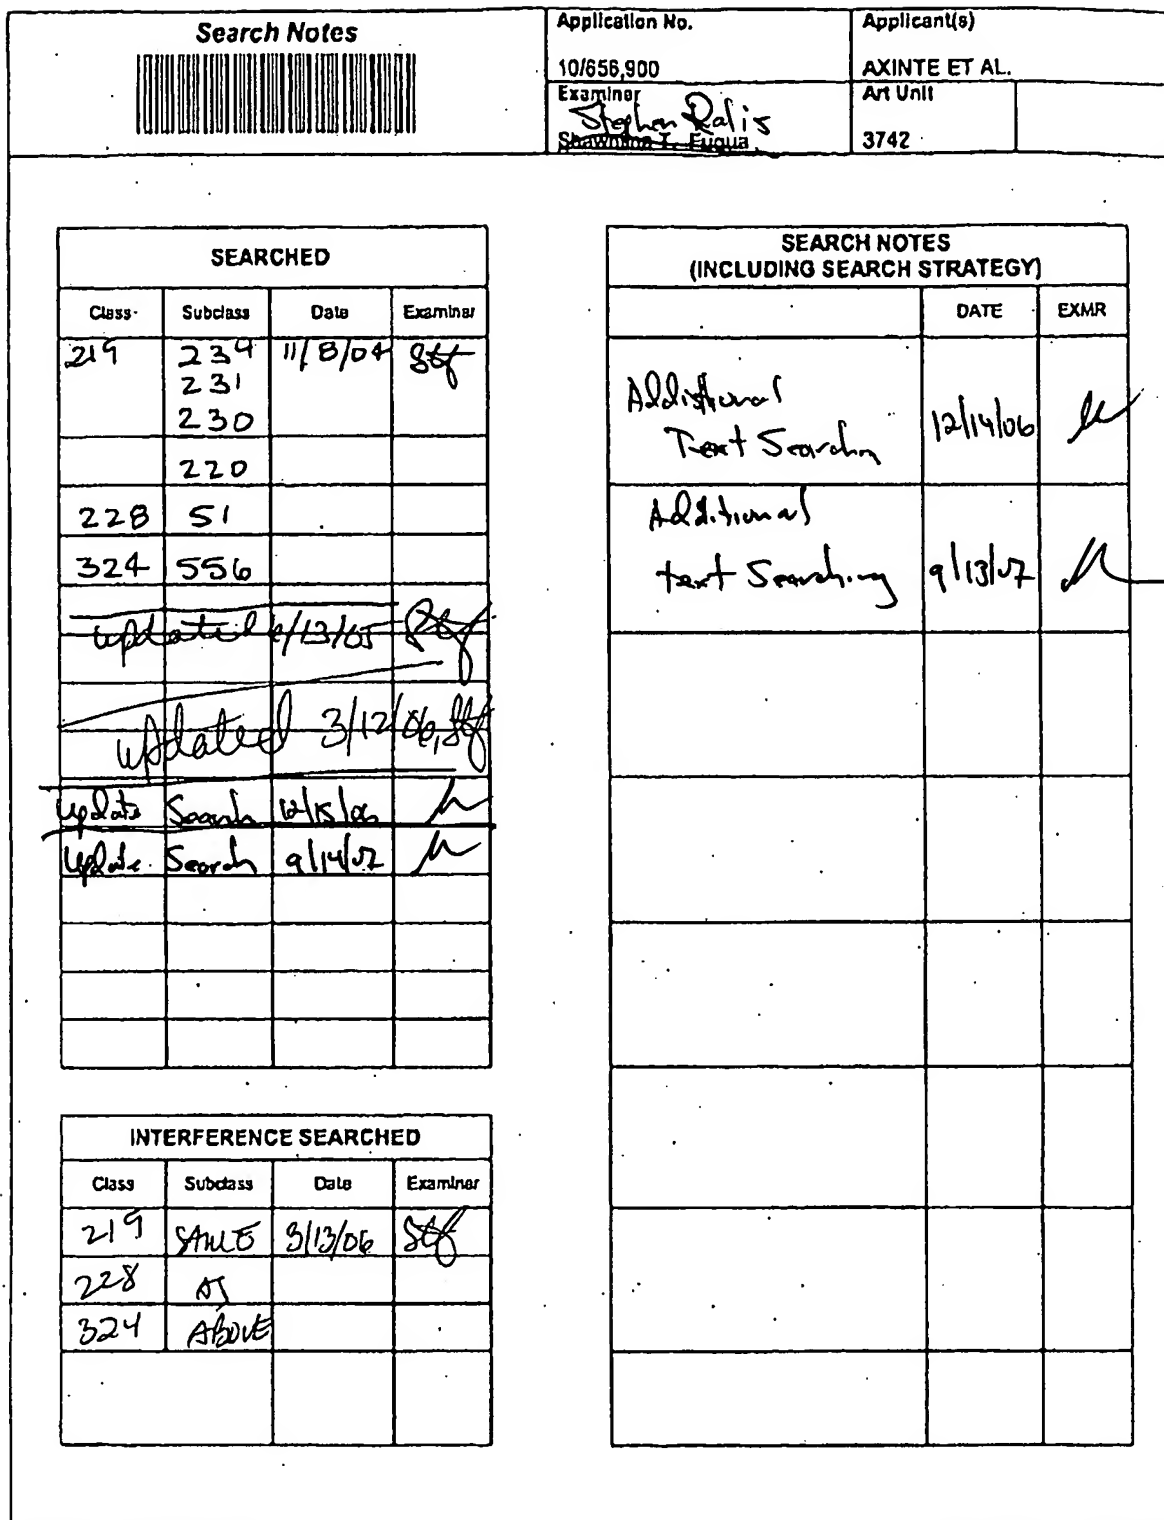 Search Notes
Application No.
10/656,900
Applicant(s)
AXINTE ET AL.
Examiner
Stephen Ralis
Shawntina T. Fuqua
Art Unit
3742
SEARCHED
Class Subclass Date Examiner
219 239 11/8/04 Stf
231
230
220
228 51
324 556
updated 6/13/05 Stf
updated 3/12/06, Stf
Update Search 12/15/06
Update Search 9/14/07
SEARCH NOTES
(INCLUDING SEARCH STRATEGY)
DATE EXMR
Additional
Text Searching 12/14/06
Additional
text Searching 9/13/07
INTERFERENCE SEARCHED
Class Subclass Date Examiner
219 SAME 3/13/06 Stf
228 AS
324 ABOVE